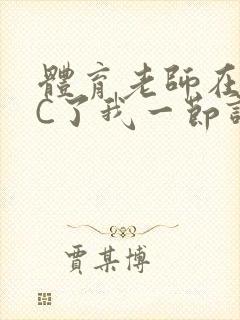 體育老師在
C了我一節
賈某博